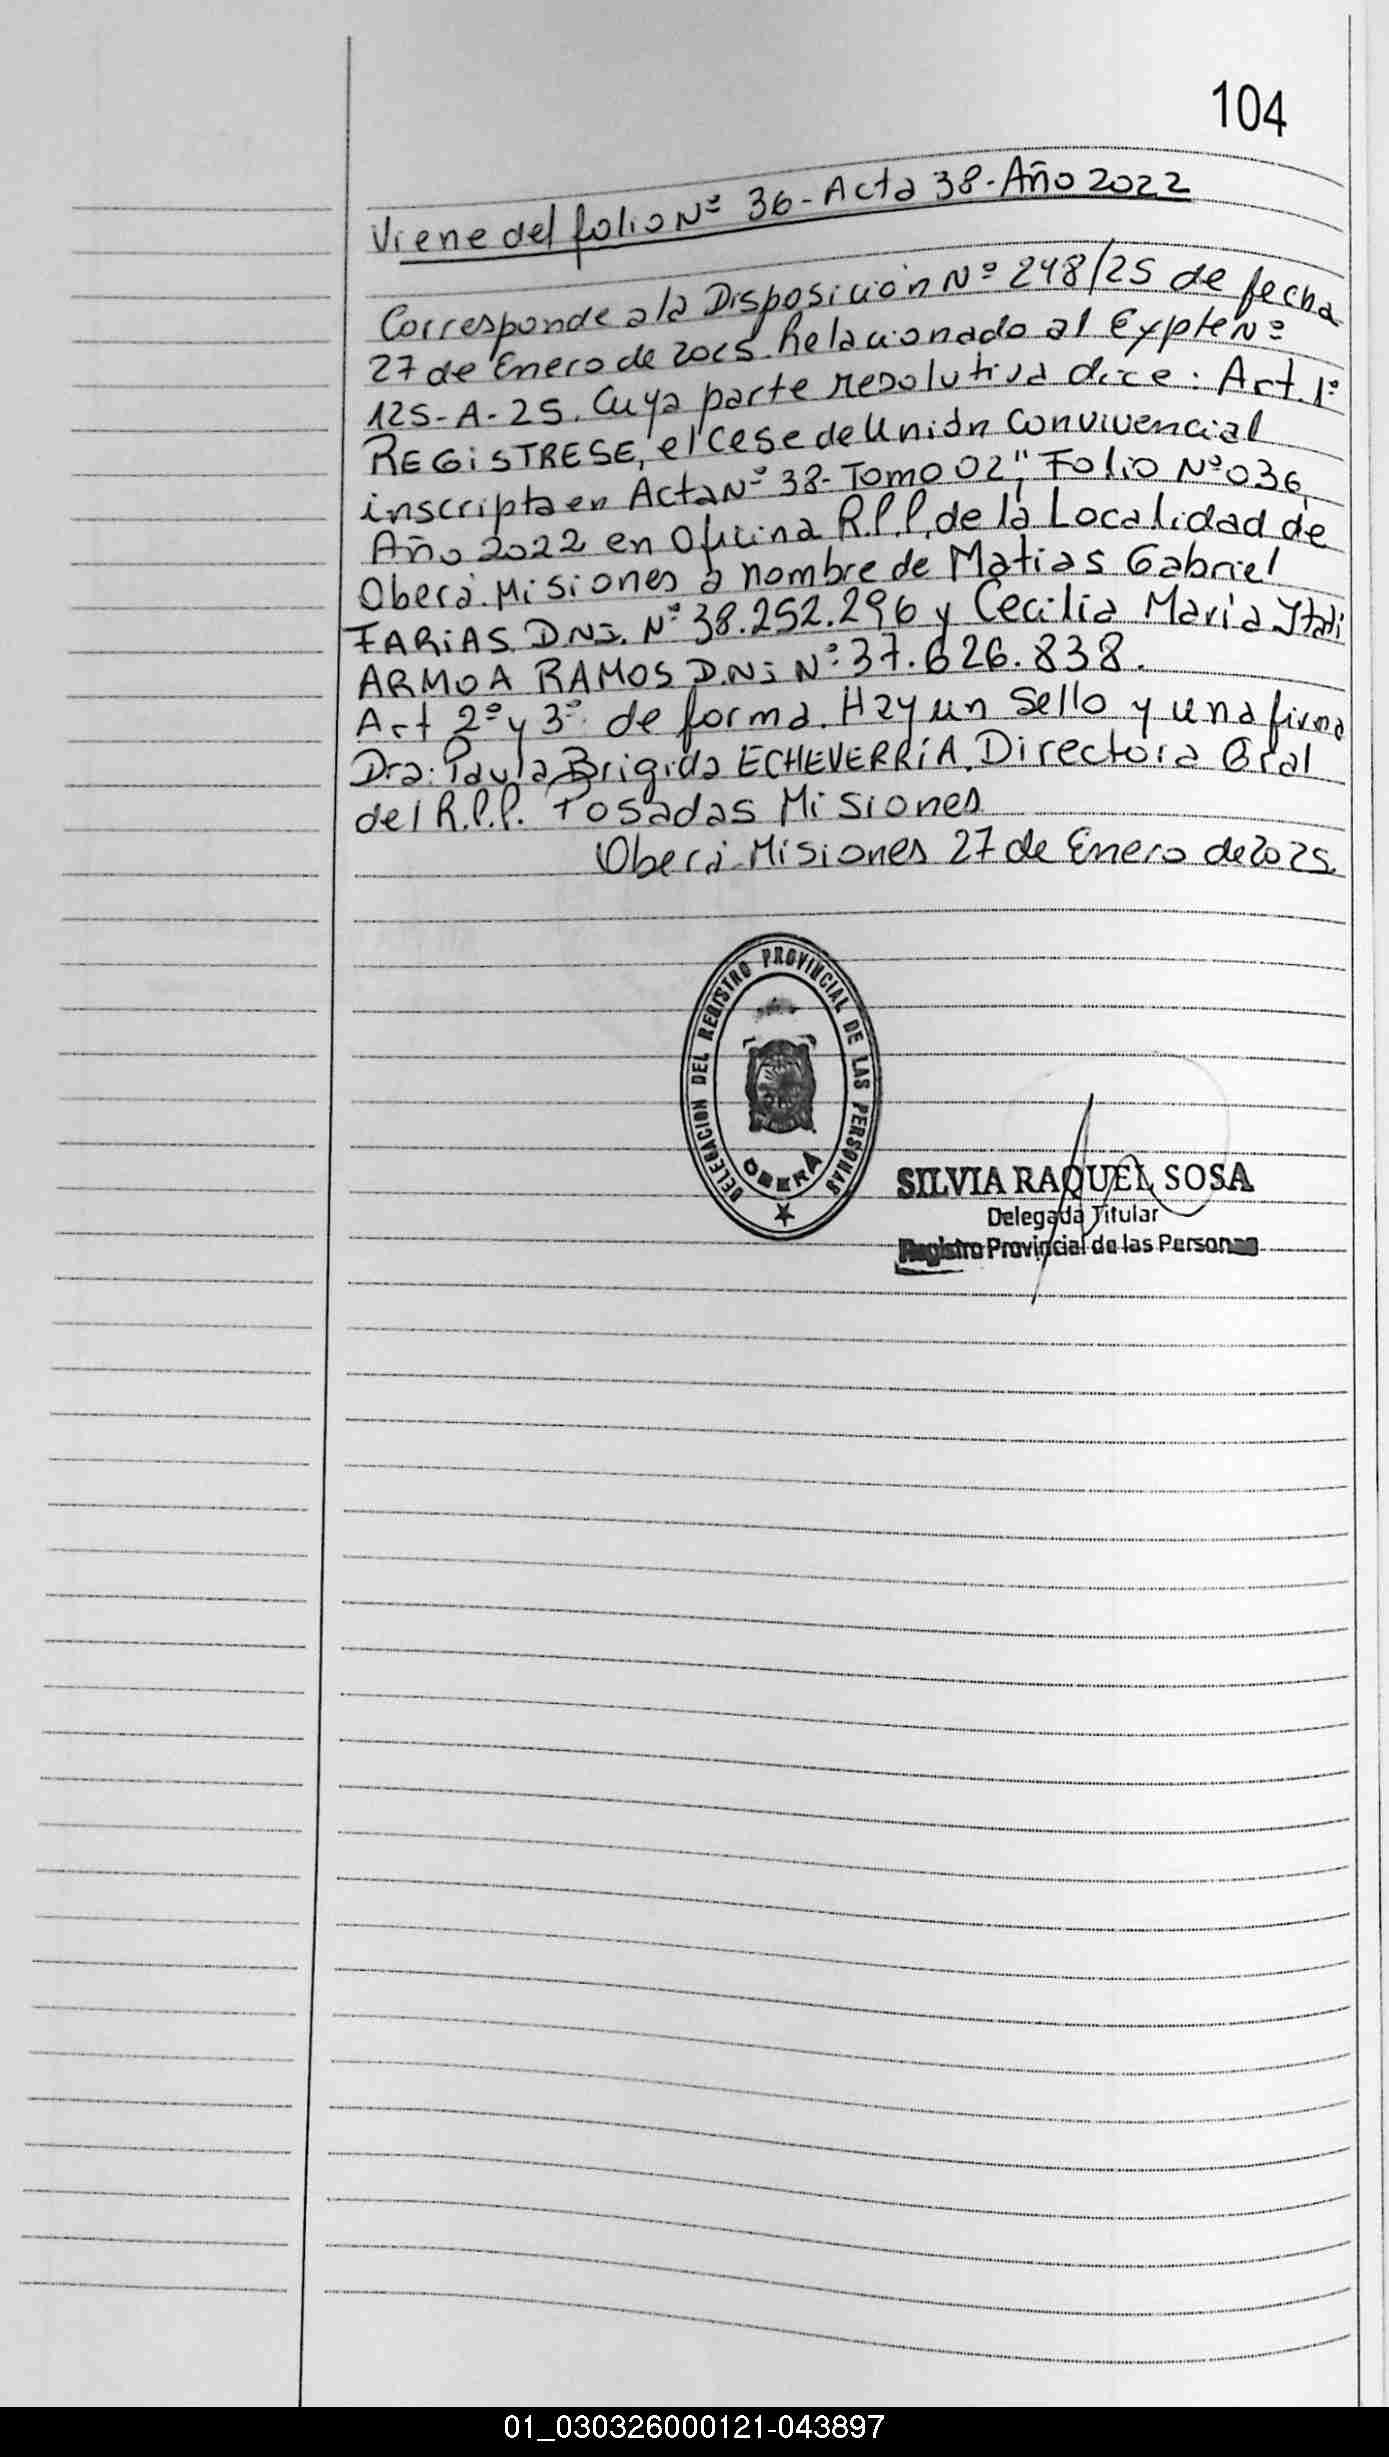 104
Viene del folio Nº 36-Acta 38-Año 2022
Corresponde a la Disposición Nº 248/25 de fecha
27 de Enero de 2025. Relacionado al Expte Nº
125-A-25. Cuya parte resolutiva dice: Art. 1º
REGiSTRESE, el Cese de Unión Convivencial
inscripta en Acta Nº 38-Tomo 02", Folio Nº 036,
Año 2022 en Oficina R.P.P. de la Localidad de
Oberá. Misiones a nombre de Matias Gabriel
FARiAS D.N.I. Nº 38.252.296 y Cecilia Maria Itati
ARMOA RAMOS D.N.i Nº 37.626.838.
Art 2º y 3º de forma. Hay un Sello y una firma
Dra: Paula Brigida ECHEVERRíA. Directora Gral
del R.P.P. Posadas Misiones
Oberá Misiones 27 de Enero de 2025.
DELEGACION DEL REGISTRO PROVINCIAL DE LAS PERSONAS
OBERÁ
SILVIA RAQUEL SOSA
Delegada Titular
Registro Provincial de las Personas
01_030326000121-043897